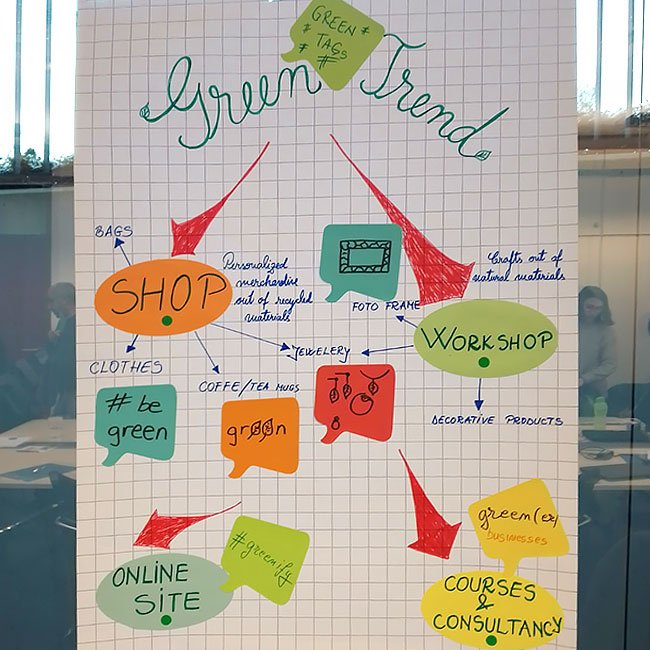 GREEN *
* TAGS
* #
Green Trend
BAGS
SHOP
Personalized
merchandise
out of recycled
materials
Crafts out of
natural materials
FOTO FRAME
WORKSHOP
JEWELERY
CLOTHES
COFFE/TEA MUGS
DECORATIVE PRODUCTS
# be
green
green
green(er)
BUSINESSES
#greenify
ONLINE
SITE
COURSES
&
CONSULTANCY